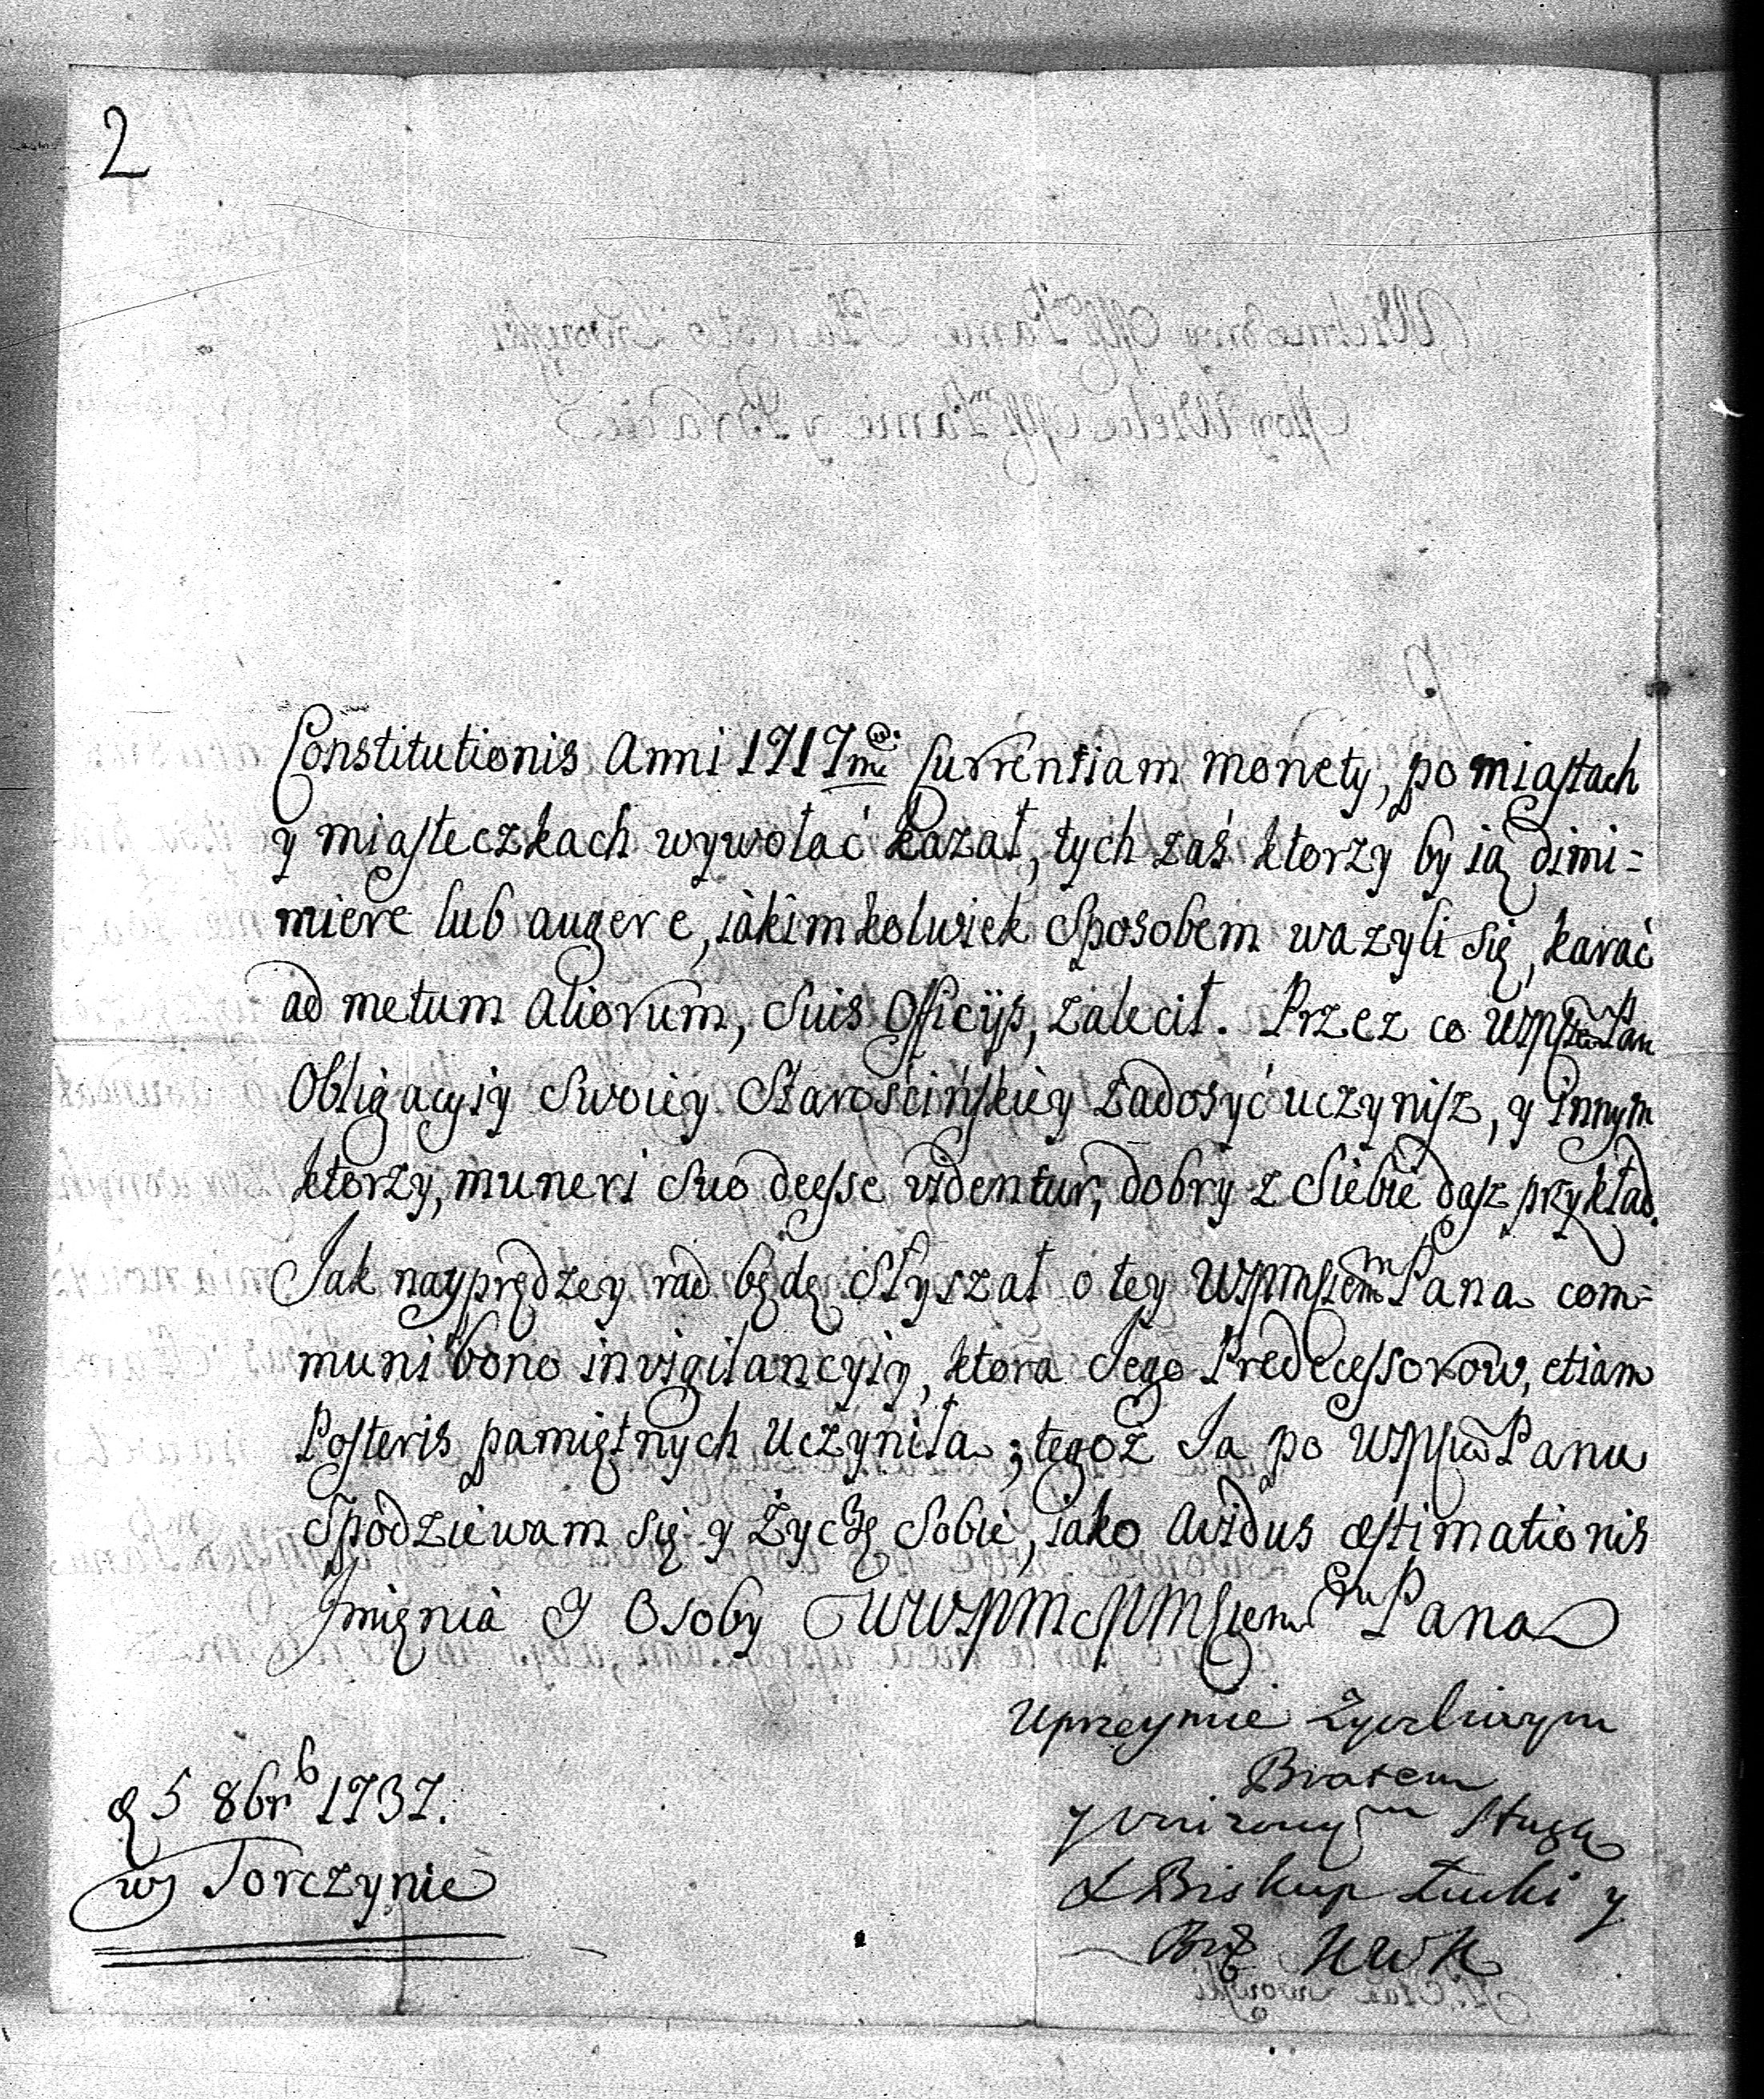 2
Constitutionis Anni 1717mi Currentiam monety, po miastach
y miasteczkach wywołać kazał, tych zaś ktorzy by ią dimi=
miere lub augere, iakimkolwiek Sposobem wazyli się, karać
ad metum aliorum, Suis Officijs, zalecił. Przez co WMPan
Obligacyiy Swoiey Starościńskiey zadosyć uczynisz, y innym
ktorzy, muneri Suo deesse videntur, dobry z Siebie dasz przykład.
Jak nayprędzey rad będę Słyszał o tey Pana com=
muni bono invigilancyiy, ktora Jego Predecessorow, etiam
Posteris pamiętnych uczyniła; tegoż Ja po Panu
Spodziewam się y życzę Sobie, iako avidus æstimationis
Imięnia y Osoby Pana
Uprzeymie Życzliwym
Bratem
y Vniżonym Sługą
Biskup Łucki y
Brz
5 8br 1737.
w Torczynie